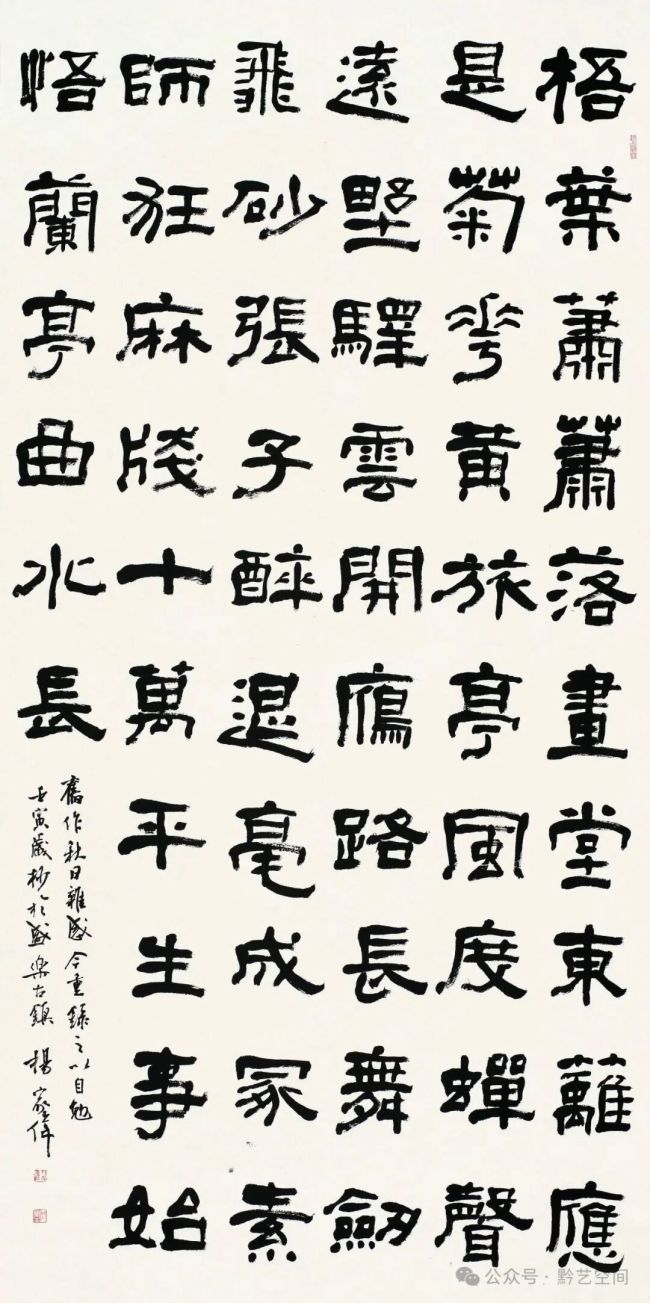 梧葉蕭蕭落畫堂東籬應
是菊華黃旅亭風度蟬聲
遠墅驛雲開鴈路長舞劍
飛砂張子醉退毫成冢素
師狂麻牋十萬平生事始
悟蘭亭曲水長
舊作秋日雜感今重錄之以自勉
壬寅歲杪於盛樂古鎮 楊
公众号：黔艺空间